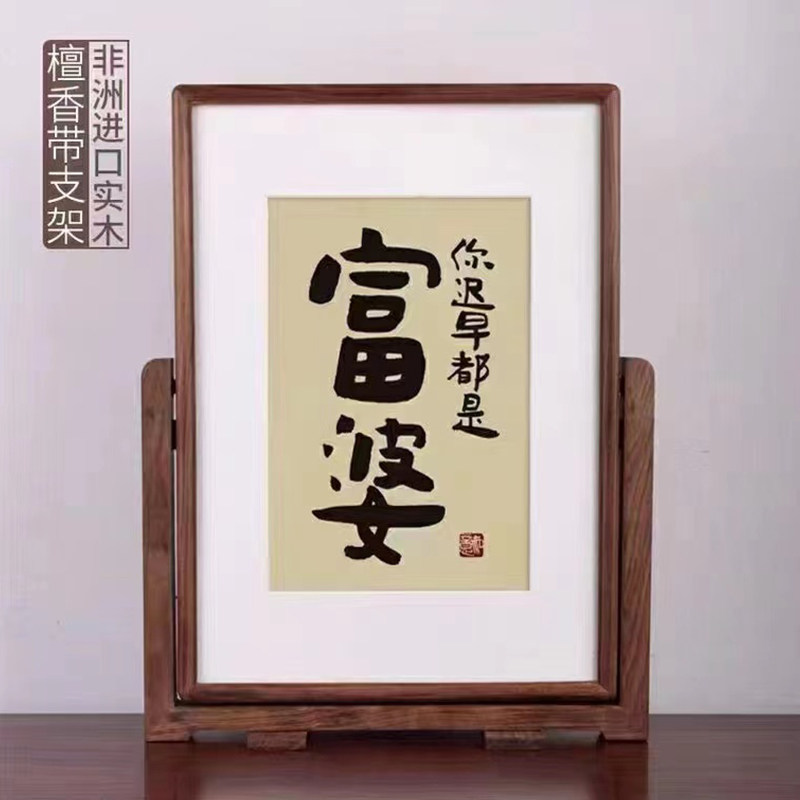 非洲进口实木
檀香带支架
你迟早都是
富婆